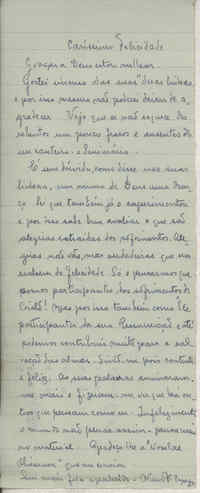 Caríssima Felicidade
Graças a Deus estou melhor.
Gostei imenso das suas duas linhas,
e por isso mesmo não poderei deixar de a
gradecer. Vejo que se não esquece do
um pouco fraco e ausentes de
um canteiro - o Seminário.
É sem dúvida, como disse nas suas
linhas, um mimo de Deus uma doen
ça. Eu que também já o experimentou
e por isso sabe bem avaliar o que são
alegrias extraídas dos sofrimentos. Ale
grias não vãs, mas verdadeiras que nos
enchem de felicidade. Se pensarmos que
somos participantes dos sofrimentos de
Cristo! Mas por isso também com Ele
participantes da sua Ressurreição e até
podemos contribuir muito para a sal
vação das almas. Sinto-me pois contente
e feliz. As suas palavras animaram-
me mais e fizeram-me ver que há ou
tros que pensam como eu. Infelizmente
o mundo não pensa assim - pensa mais
no material. Agradeço-lhe a
que me enviou.
Sem mais fica agradecido -